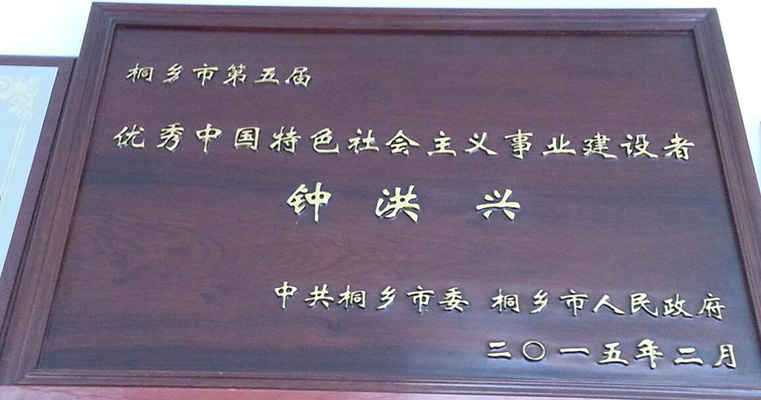 桐乡市第五届
优秀中国特色社会主义事业建设者
钟洪兴
中共桐乡市委 桐乡市人民政府
二〇一五年二月